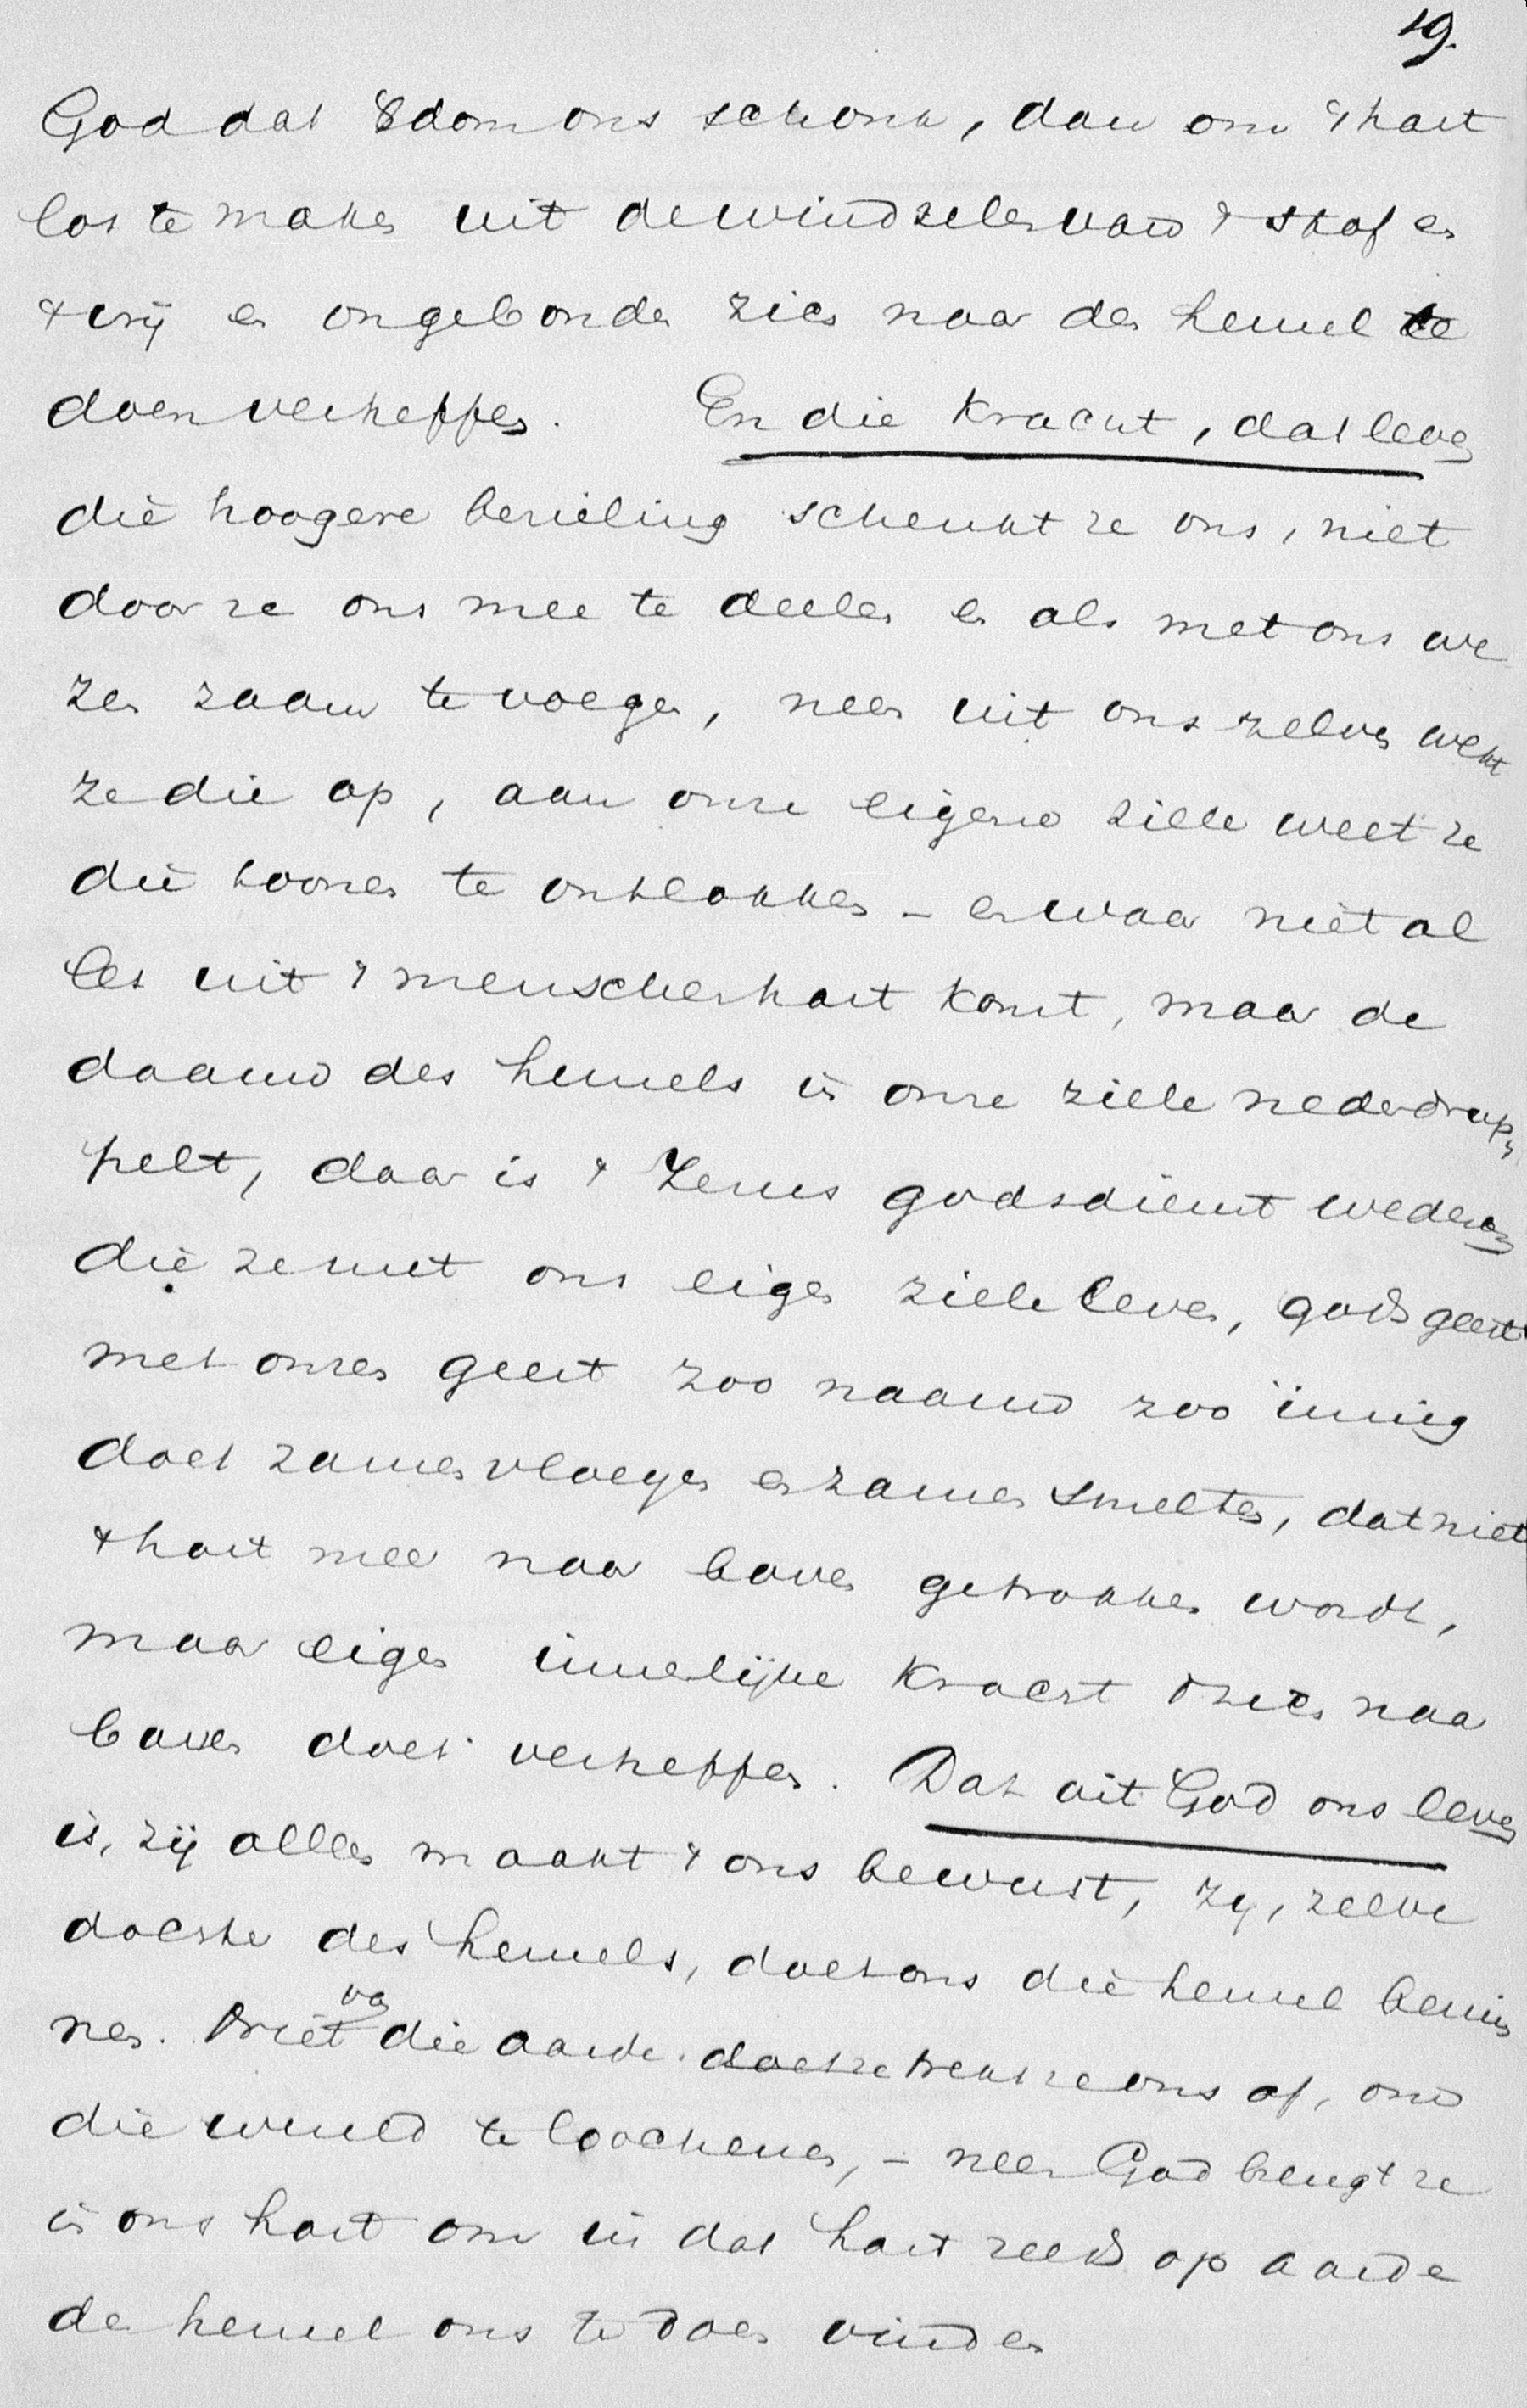 19.
God dat &dom ons schonk, dan om 't hart
los te maken uit de windzelen van 't stof en
't vrij en ongebonden zich naar den hemel te
doen verheffen. En die kracht, dat leven
die hoogere bezieling schenkt ze ons, niet
door ze ons mee te deelen en als met ons we
zen zaam te voegen, neen uit ons zelven wekt
ze die op, aan onze eigene ziele weet ze
die toonen te ontlokken – en waar niet al
les uit 't menschenhart komt, maar de
daauw des hemels in onze ziele nederdrup„
pelt, daar is 't Jezus godsdienst wederom
die ze met ons eigen ziele leven, gods geest
met onzen geest zoo naauw zoo innig
doet zamenvloeyen en zamen smelten, dat niet
't hart mee naar boven getrokken wordt,
maar eigen innelijke kracht 't zich naar
boven doet verheffen. Dat uit God ons leven
is, zij alleen maakt 't ons bewust, zij, zelve
dochter des hemels, doet ons die hemel bemin
nen. Niet van die aarde doet ze trekt ze ons af, om
die wereld te loochenen, – neen God brengt ze
in ons hart om in dat hart reeds op aarde
den hemel ons te doen vinden